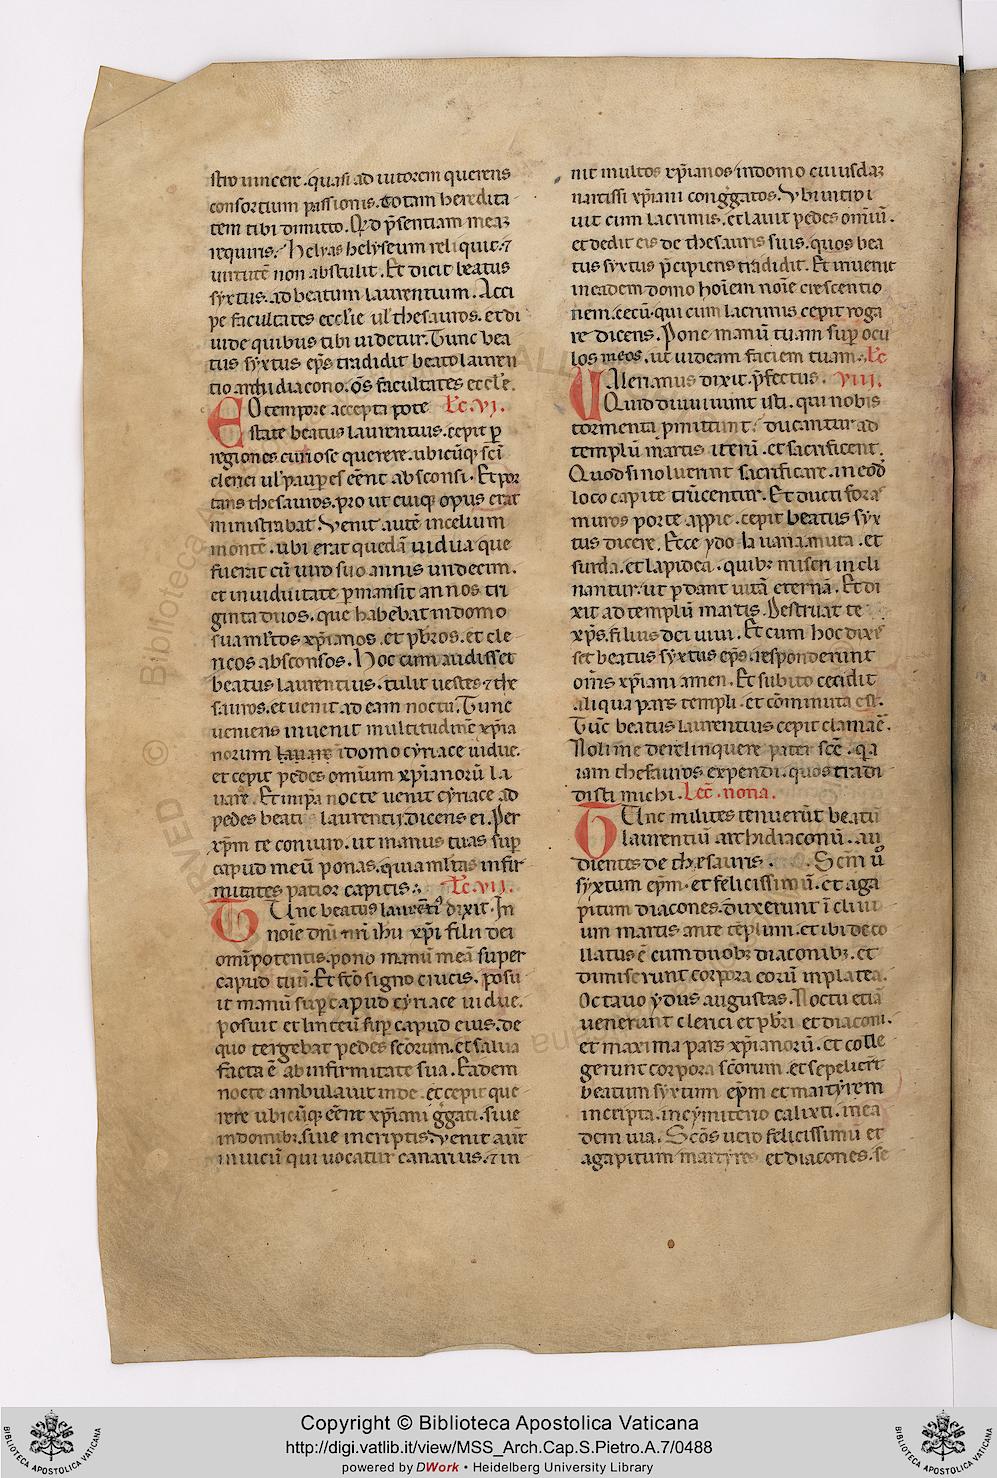 stro uincere. quasi adiutorem querens
consortium passionis. Totam heredita
tem tibi dimitto. Qd p̄sentiam meaꝫ
requiris. Helyas helyseum reliquit. ⁊
uirtutē non abstulit. Et dicit beatus
syxtus. ad beatum laurentium. Acci
pe facultates eccl'ie ul' thesauros. et di
uide quibus tibi uidetur. Tunc bea
tus syxtus ep̄s tradidit beato lauren
tio archidiacono. ōs facultates eccl'e.
EO tempore accepta pote Lc̄. VI.
state beatus laurentius. cepit p̄
regiones curiose querere. ubicūqꝫ sc̄i
clerici ul' paup̄es eēnt absconsi. Et por
tans thesauros. pro ut cuiqꝫ opus erat
ministrabat. Venit autē in celium
montē. ubi erat quedā uidua que
fuerat cū uiro suo annis undecim.
et in uiduitate p̄mansit annos tri
ginta duos. que habebat in domo
sua ml'tos xp̄ianos. et pb̄ros. et cle
ricos absconsos. Hoc cum audisset
beatus laurentius. tulit uestes ⁊ the
sauros. et uenit ad eam noctu. Tunc
ueniens inuenit multitudinē xp̄ia
norum lauare ī domo cyriace uidue.
et cepit pedes omnium xp̄ianorū la
uare. Et in ip̄a nocte uenit cyriace ad
pedes beati laurentij dicens ei. Per
xp̄m te coniuro. ut manus tuas sup̄
capud meū ponas. quia ml'tas infir
mitates patior capitis. Lc̄. VII.
TUnc beatus laurēti' dixit. In
noīe dn̄i nr̄i ih̄u xp̄i filii dei
omīpotentis. pono manū meā super
capud tuū. Et fc̄o signo crucis. posu
it manū sup̄ capud cyriace uidue.
posuit et linteū sup̄ capud eius. de
quo tergebat pedes sc̄orum. et salua
facta ē ab infirmitate sua. Eadem
nocte ambulauit inde. et cepit que
rere ubicūqꝫ eēnt xp̄iani ggati. siue
in domibꝫ. siue in criptis. Venit aūt
in uicū qui uocatur canarius. ⁊ in
nit multos xp̄ianos in domo cuiusdaꝫ
narcissi xp̄iani cong̃gatos. Vbi introi
uit cum lacrimis. et lauit pedes om̄iū.
et dedit eis de thesauris suis. quos bea
tus syxtus p̄cipiens tradidit. Et inuenit
in eadem domo hoīem noīe crescentio
nem. cecū. qui cum lacrimis cepit roga
re dicens. Pone manū tuam sup̄ ocu
los meos. ut uideam faciem tuam. Lc̄
VAlerianus dixit p̄fectus. VIII.
Quid diu uiuunt isti. qui nobis
tormenta p̄mittunt. ducantur ad
templū martis iterū. et sacrificent.
Quod si noluerint sacrificare. in eodē
loco capite truncentur. Et ducti foras
muros porte appie. cepit beatus syx
tus dicere. Ecce ydola uana. muta. et
surda. et lapidea. quibꝫ miseri incli
nantur. ut p̄dant uitā eternā. Et di
xit ad templū martis. Destruat te
xp̄s. filius dei uiui. Et cum hoc dixis
set beatus syxtus ep̄s. responderunt
om̄s xp̄iani amen. Et subito cecidit
aliqua pars templi. et cōminuta est.
Tūc beatus laurentius cepit clamaē.
Noli me derelinquere pater sc̄e. q̄a
iam thesauros expendi. quos tradi
disti michi. Lec̄. nona.
TUnc milites tenuerūt beatū
laurentiū archidiaconū. au
dientes de thesauris. Sc̄m ū
syxtum ep̄m. et felicissimū. et aga
pitum diacones. duxerunt ī cliuu
um martis ante tēplum. et ibi deco
llatus ē cum duobꝫ diaconibꝫ. et
dimiserunt corpora eorū in platea.
Octauo ydus augustas. Noctu etiā
uenerunt clerici et pb̄ri et diaconi.
et maxima pars xp̄ianorū. et colle
gerunt corpora sc̄orum. et sepelierūt
beatum syxtum ep̄m et martyrem
in cripta. in cymiterio calixti. in ea
dem uia. Sc̄os uero felicissimū et
agapitum martyres et diacones. se
Copyright © Biblioteca Apostolica Vaticana
http://digi.vatlib.it/view/MSS_Arch.Cap.S.Pietro.A.7/0488
powered by DWork • Heidelberg University Library
BIBLIOTECA APOSTOLICA VATICANA
BIBLIOTECA APOSTOLICA VATICANA